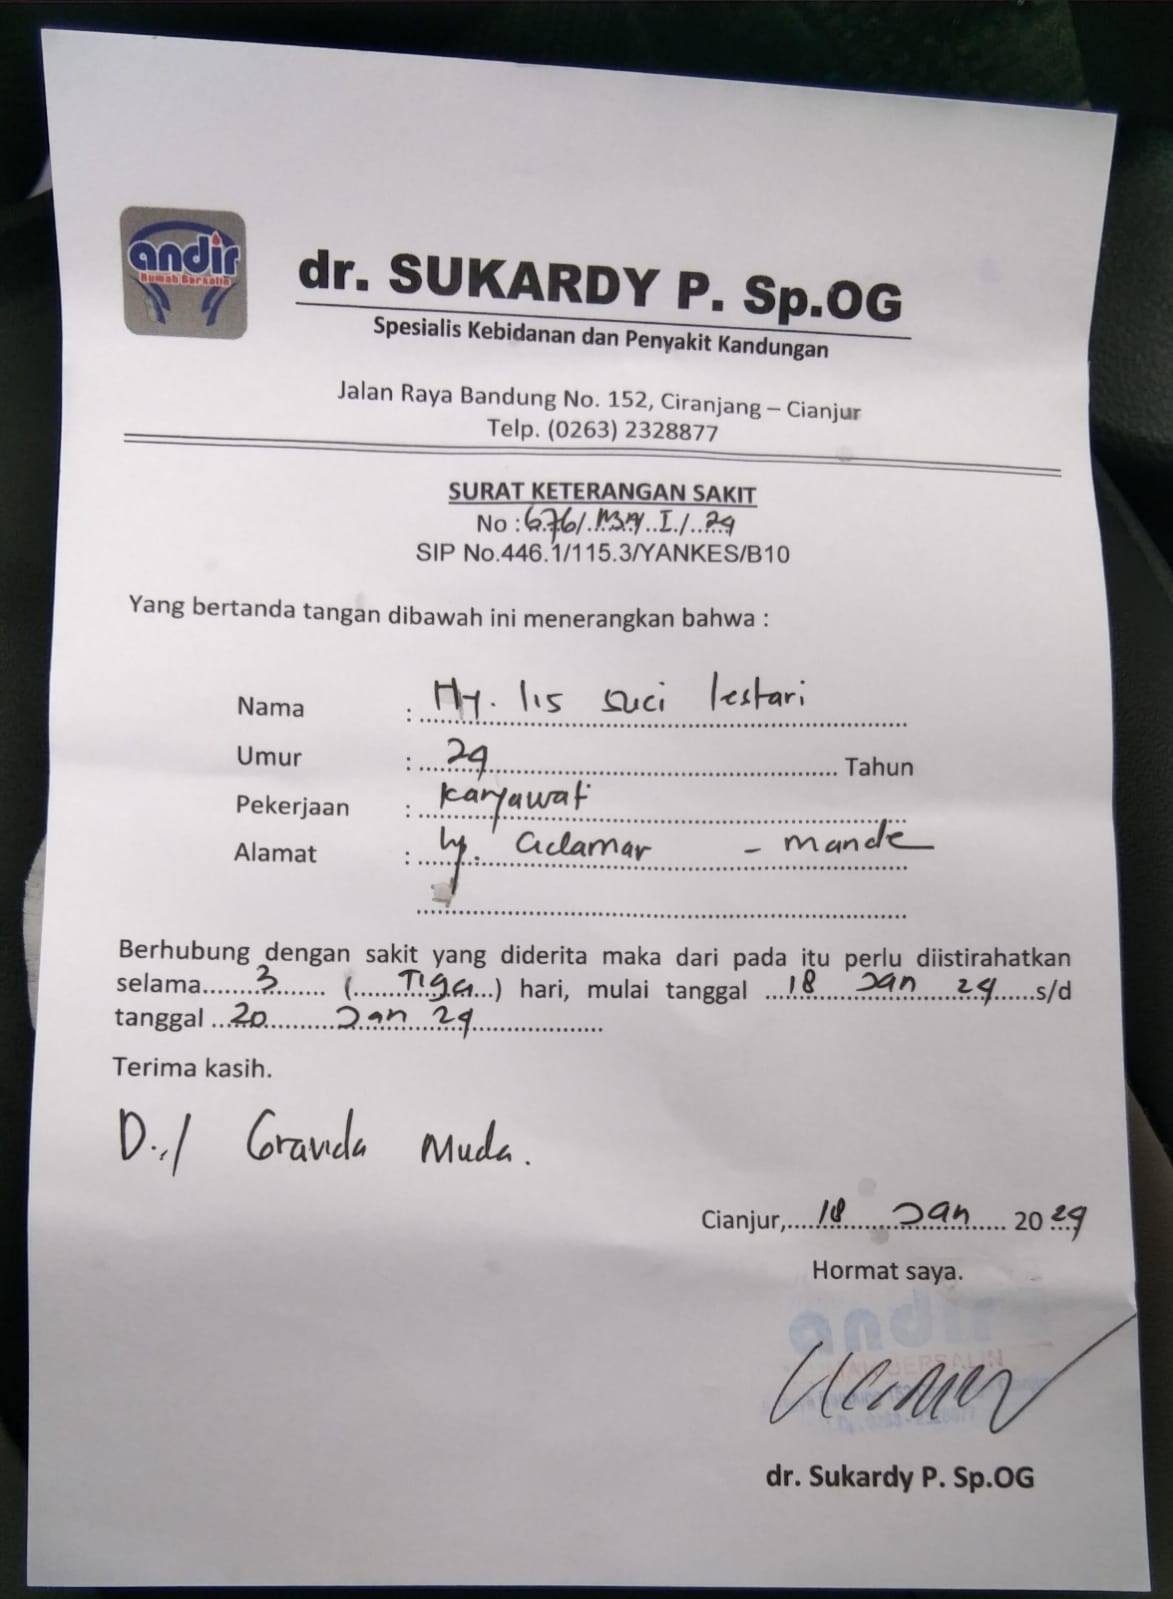 andir
Rumah Bersalin
dr. SUKARDY P. Sp.OG
Spesialis Kebidanan dan Penyakit Kandungan
Jalan Raya Bandung No. 152, Ciranjang – Cianjur
Telp. (0263) 2328877
SURAT KETERANGAN SAKIT
No : 676/ I / 24
SIP No.446.1/115.3/YANKES/B10
Yang bertanda tangan dibawah ini menerangkan bahwa :
Nama : Ny. lis suci lestari
Umur : 29 Tahun
Pekerjaan : karyawati
Alamat : - mande
Berhubung dengan sakit yang diderita maka dari pada itu perlu diistirahatkan
selama 3 ( Tiga ) hari, mulai tanggal 18 Jan 24 s/d
tanggal 20 Jan 24
Terima kasih.
D./ Gravida Muda.
Cianjur, 18 Jan 2024
Hormat saya.
andir
RUMAH BERSALIN
dr. Sukardy P. Sp.OG